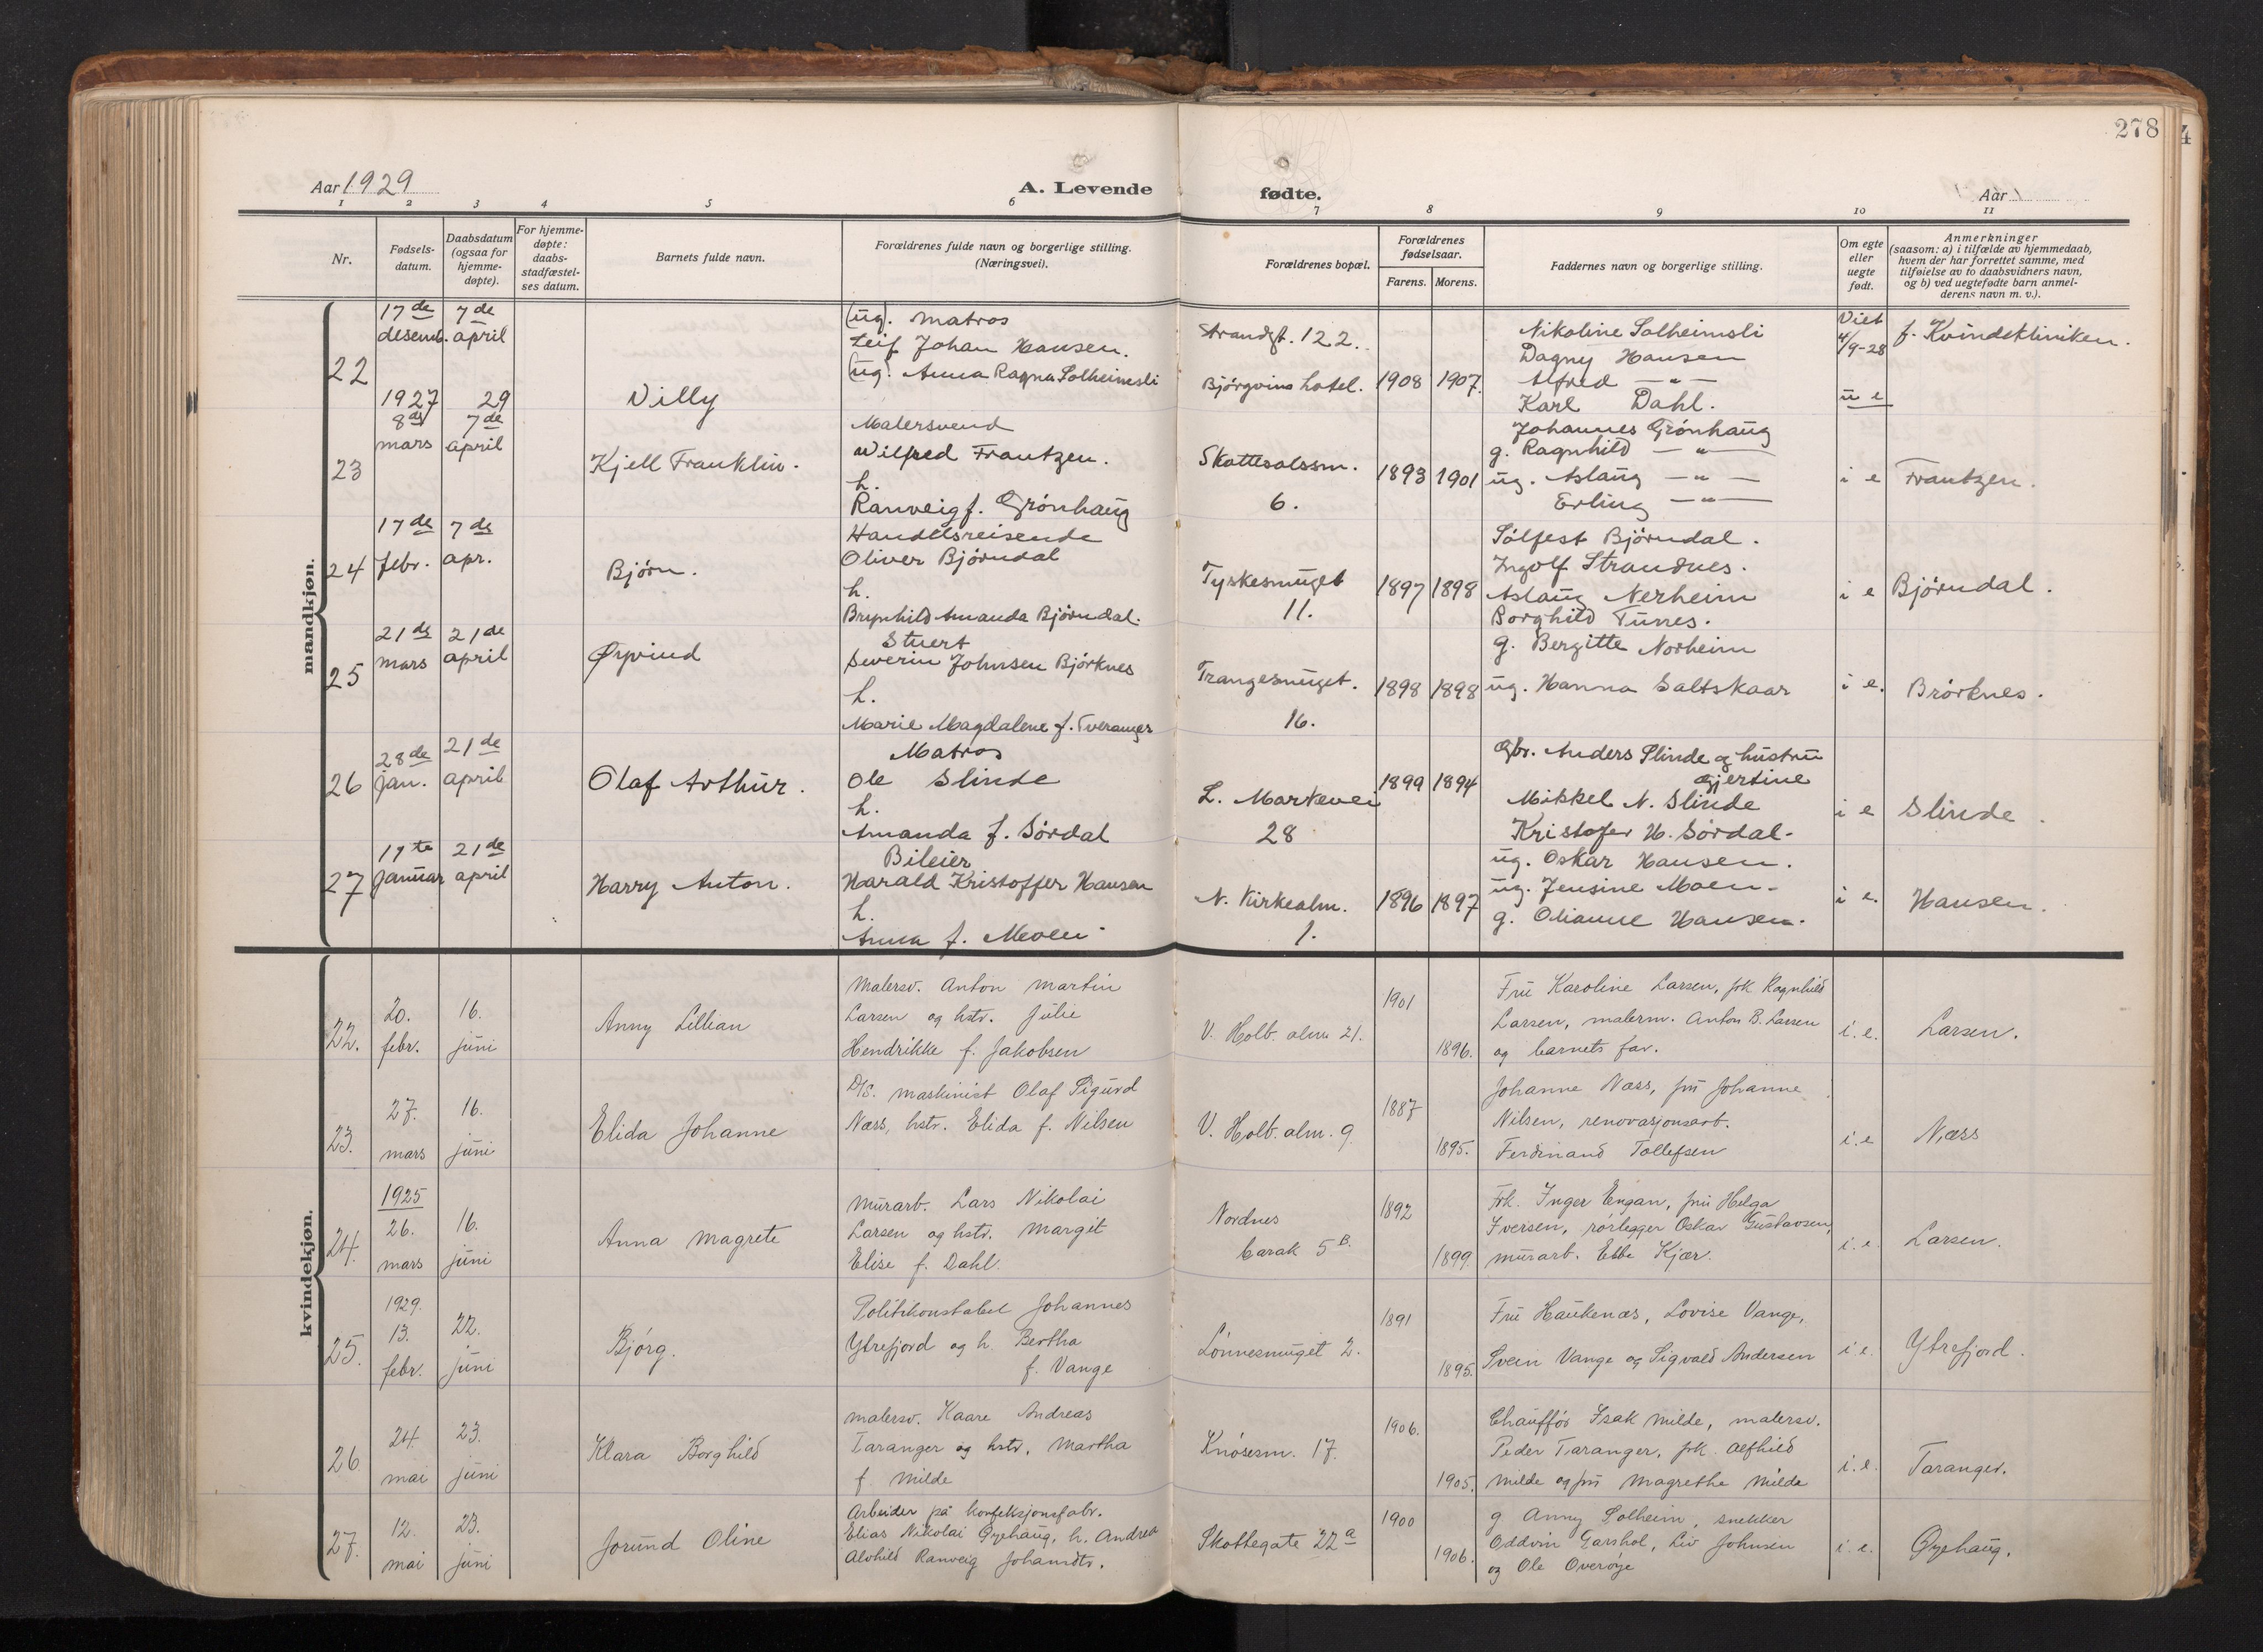 278
Aar 1929
A. Levende fødte.
Aar
1 2 3 4 5 6 7 8 9 10 11
Nr.
Fødsels-
datum.
Daabsdatum
(ogsaa for
hjemme-
døpte).
For hjemme-
døpte:
daabs-
stadfæstel-
ses datum.
Barnets fulde navn.
Forældrenes fulde navn og borgerlige stilling.
(Næringsvei).
Forældrenes bopæl.
Forældrenes
fødselsaar.
Farens. Morens.
Faddernes navn og borgerlige stilling.
Om egte
eller
uegte
født.
Anmerkninger
(saasom: a) i tilfælde av hjemmedaab,
hvem der har forrettet samme, med
tilføielse av to daabsvidners navn,
og b) ved uegtefødte barn anmel-
derens navn m. v.).
mandkjøn.
22
17de
desemb.
1927
7de
april
29
Willy
(ug). Matros
Leif Johan Hansen.
(ug). Anna Ragna Solheimsli
Strandgt. 122.
Bjørgvins hotel.
1908 1907.
Nikoline Solheimsli
Dagny Hansen
Alfred — " —
Karl Dahl.
Viet
4/9-28
u e
f. Kvindekliniken.
23
8de
mars
7de
april
Kjell Franklin.
Malersvend
Wilfred Frantzen.
h.
Ranveig f. Grønhaug
Skottesalssm.
6.
1893 1901
Johannes Grønhaug
g. Ragnhild — " —
ug. Aslaug — " —
Erling — " —
i e
Frantzen.
24
17de
febr.
7de
apr.
Bjørn.
Handelsreisende
Oliver Bjørndal
h.
Brynhild Amanda Bjørndal.
Tyskesmuget
11.
1897 1898
Sølfest Bjørndal.
Ingolf Strandnes.
Aslaug Nerheim
Borghild Tunes.
i e
Bjørndal.
25
21de
mars
21de
april
Øyvind
Stuert
Severin Johnsen Bjørknes
h.
Marie Magdalene f. Tveranger
Trangesmuget.
16.
1898 1898
g. Bergitte Norheim
ug. Hanna Saltskaar
i e.
Brørknes.
26
28de
jan.
21de
april
Olaf Arthur.
Matros
Ole Slinde
h.
Amanda f. Sørdal
L. Markevei
28
1899 1894
Gbr. Anders Slinde og hustru
Gjertine
Mikkel N. Slinde
Kristofer H. Sørdal.
i e
Slinde.
27
11te
januar
21de
april
Harry Anton.
Bileier
Harald Kristoffer Hansen
h.
Anna f. Moen
N. Kirkealm.
1.
1896 1897
ug. Oskar Hansen.
ug. Jensine Moen.
g. Olianne Hansen.
i e.
Hansen.
kvindekjøn.
22.
20.
febr.
16.
juni
Anny Lillian
Malersv. Anton Martin
Larsen og hstr. Julie
Hendrikke f. Jakobsen
V. Holb. alm. 21.
1901
1896.
Fru Karoline Larsen, frk Ragnhild
Larsen, malerm. Anton B. Larsen
og barnets far.
i. e.
Larsen.
23.
27.
mars
16.
juni
Elida Johanne
D/S. maskinist Olaf Sigurd
Næss, hstr. Elida f. Nilsen
V. Holb. alm. 9.
1887
1895.
Johanne Næss, fru Johanne
Nilsen, renovasjonsarb.
Ferdinand Tollefsen
i. e
Næss
24.
1925
26.
mars
16.
juni
Anna Magrete
Murarb. Lars Nikolai
Larsen og hstr. Margit
Elise f. Dahl.
Nordnes
barak 5B.
1892
1899.
Frk. Inger Engan, fru Helga
Iversen, rørlegger Oskar Gustavsen,
murarb. Ebbe Kjær.
i. e.
Larsen.
25.
1929.
13.
febr.
22.
juni
Bjørg.
Politikonstabel Johannes
Ytrefjord og h. Bertha
f. Vange
Lønnesmuget 2.
1891
1895.
Fru Haukenæs, Lovise Vange,
Svein Vange og Sigvald Andersen
i. e.
Ytrefjord.
26
24.
mai
23.
juni
Klara Borghild
malersv. Kaare Andreas
Taranger og hstr. Martha
f. Milde
Knøsesm. 17.
1906.
1905.
Chauffør Isak Milde, malersv.
Peder Taranger, frk. Alfhild
Milde og fru Magrethe Milde
i. e.
Taranger.
27.
12.
mai
23.
juni
Jorund Oline
Arbeider på konfeksjonsfabr.
Elias Nikolai Øyehaug, h. Andrea
Alvhild Ranveig Johansdtr.
Skottegate 22a
1900
1906.
g. Anny Solheim, snekker
Oddvin Garshol, Liv Johnsen
og Ole Overøye
i. e.
Øyehaug.